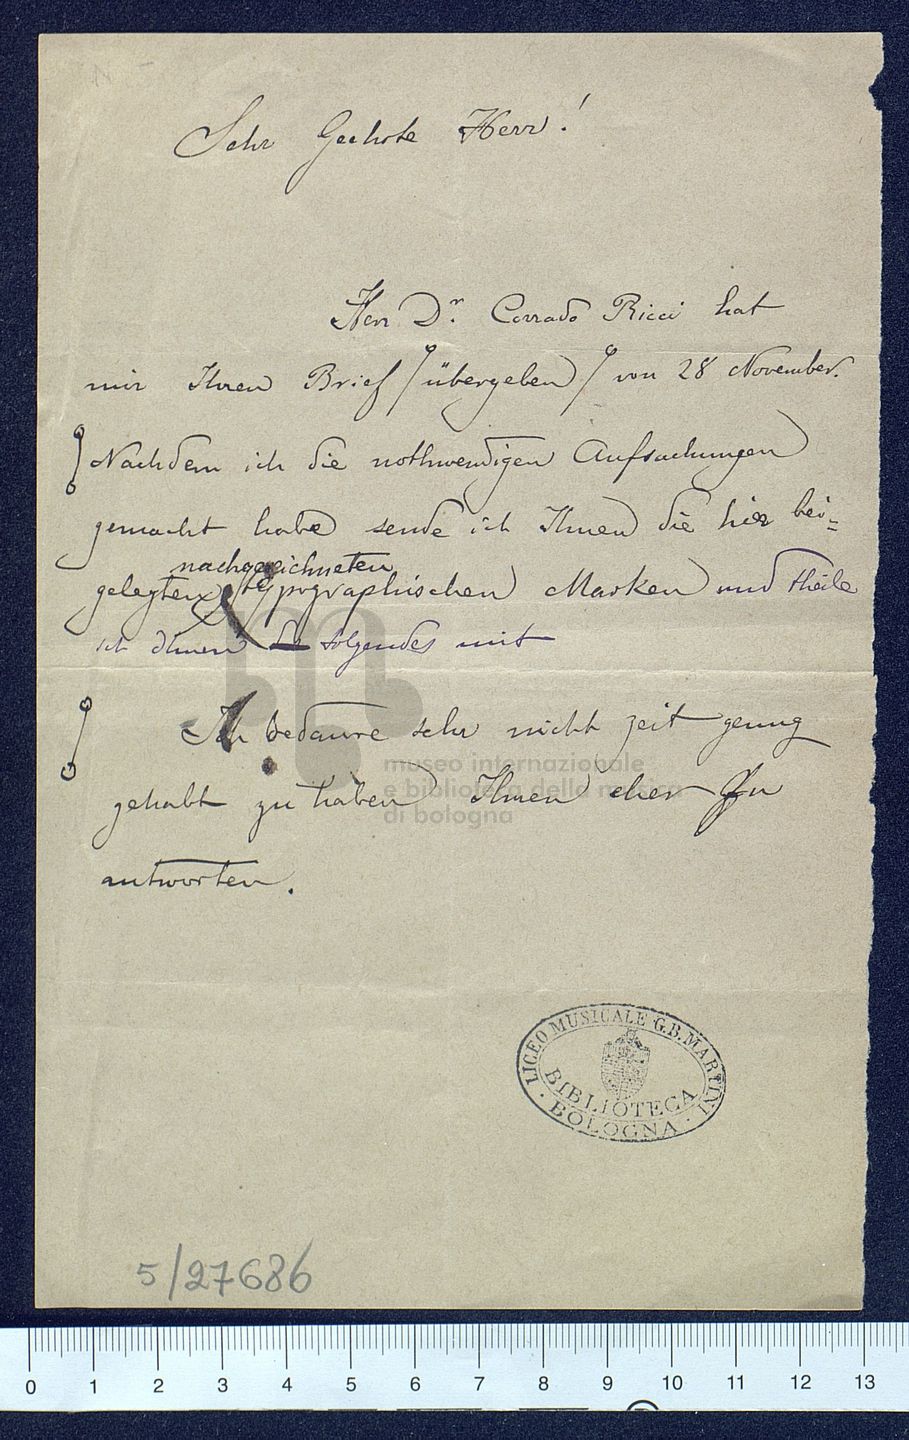 Sehr Geehrte Herr!
Herr Dr. Corrado Ricci hat
mir Ihren Brief (übergeben) von 28 November.
Nachdem ich die nothwendigen Aufsuchungen
gemacht habe sende ich Ihnen die hier bei=
nachgezeichneten
gelegten typographischen Marken und theile
ich Ihnen folgendes mit
Ich bedaure sehr nicht zeit genug
gehabt zu haben Ihnen eher zu
antworten.
museo internazionale
e biblioteca della musica
di bologna
LICEO MUSICALE G.B. MARTINI
BIBLIOTECA
· BOLOGNA ·
5/27686
0 1 2 3 4 5 6 7 8 9 10 11 12 13